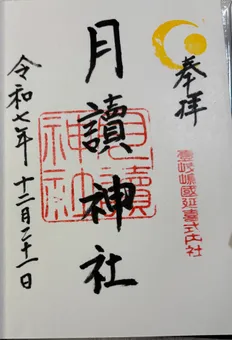 奉拝
壹岐嶋國延喜式内社
月讀神社
月讀神社
令和七年 十二月二十一日